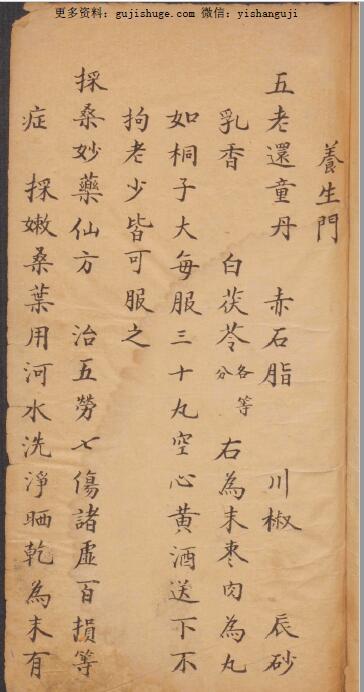 更多资料：gujishuge.com 微信：yishanguji
養生門
五老還童丹　赤石脂　川椒　辰砂
乳香　白茯苓各等分　右為末棗肉為丸
如桐子大每服三十丸空心黄酒送下不
拘老少皆可服之
採桑妙藥仙方　治五勞七傷諸虛百損等
症　採嫩桑葉用河水洗淨晒乾為末有